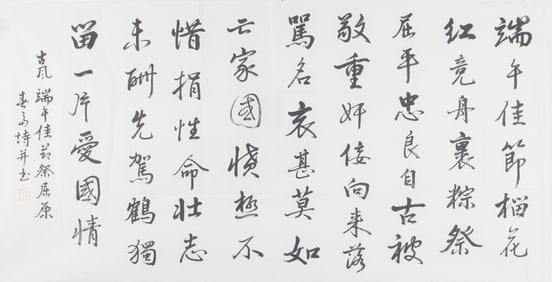 端午佳節榴花
红竞舟裹粽祭
屈平忠良自古被
敬重奸佞向来落
罵名哀甚莫如
亡家國愤極不
惜捐性命壮志
未酬先駕鶴獨
留一片愛國情
古风 端午佳节祭屈原
詩并书